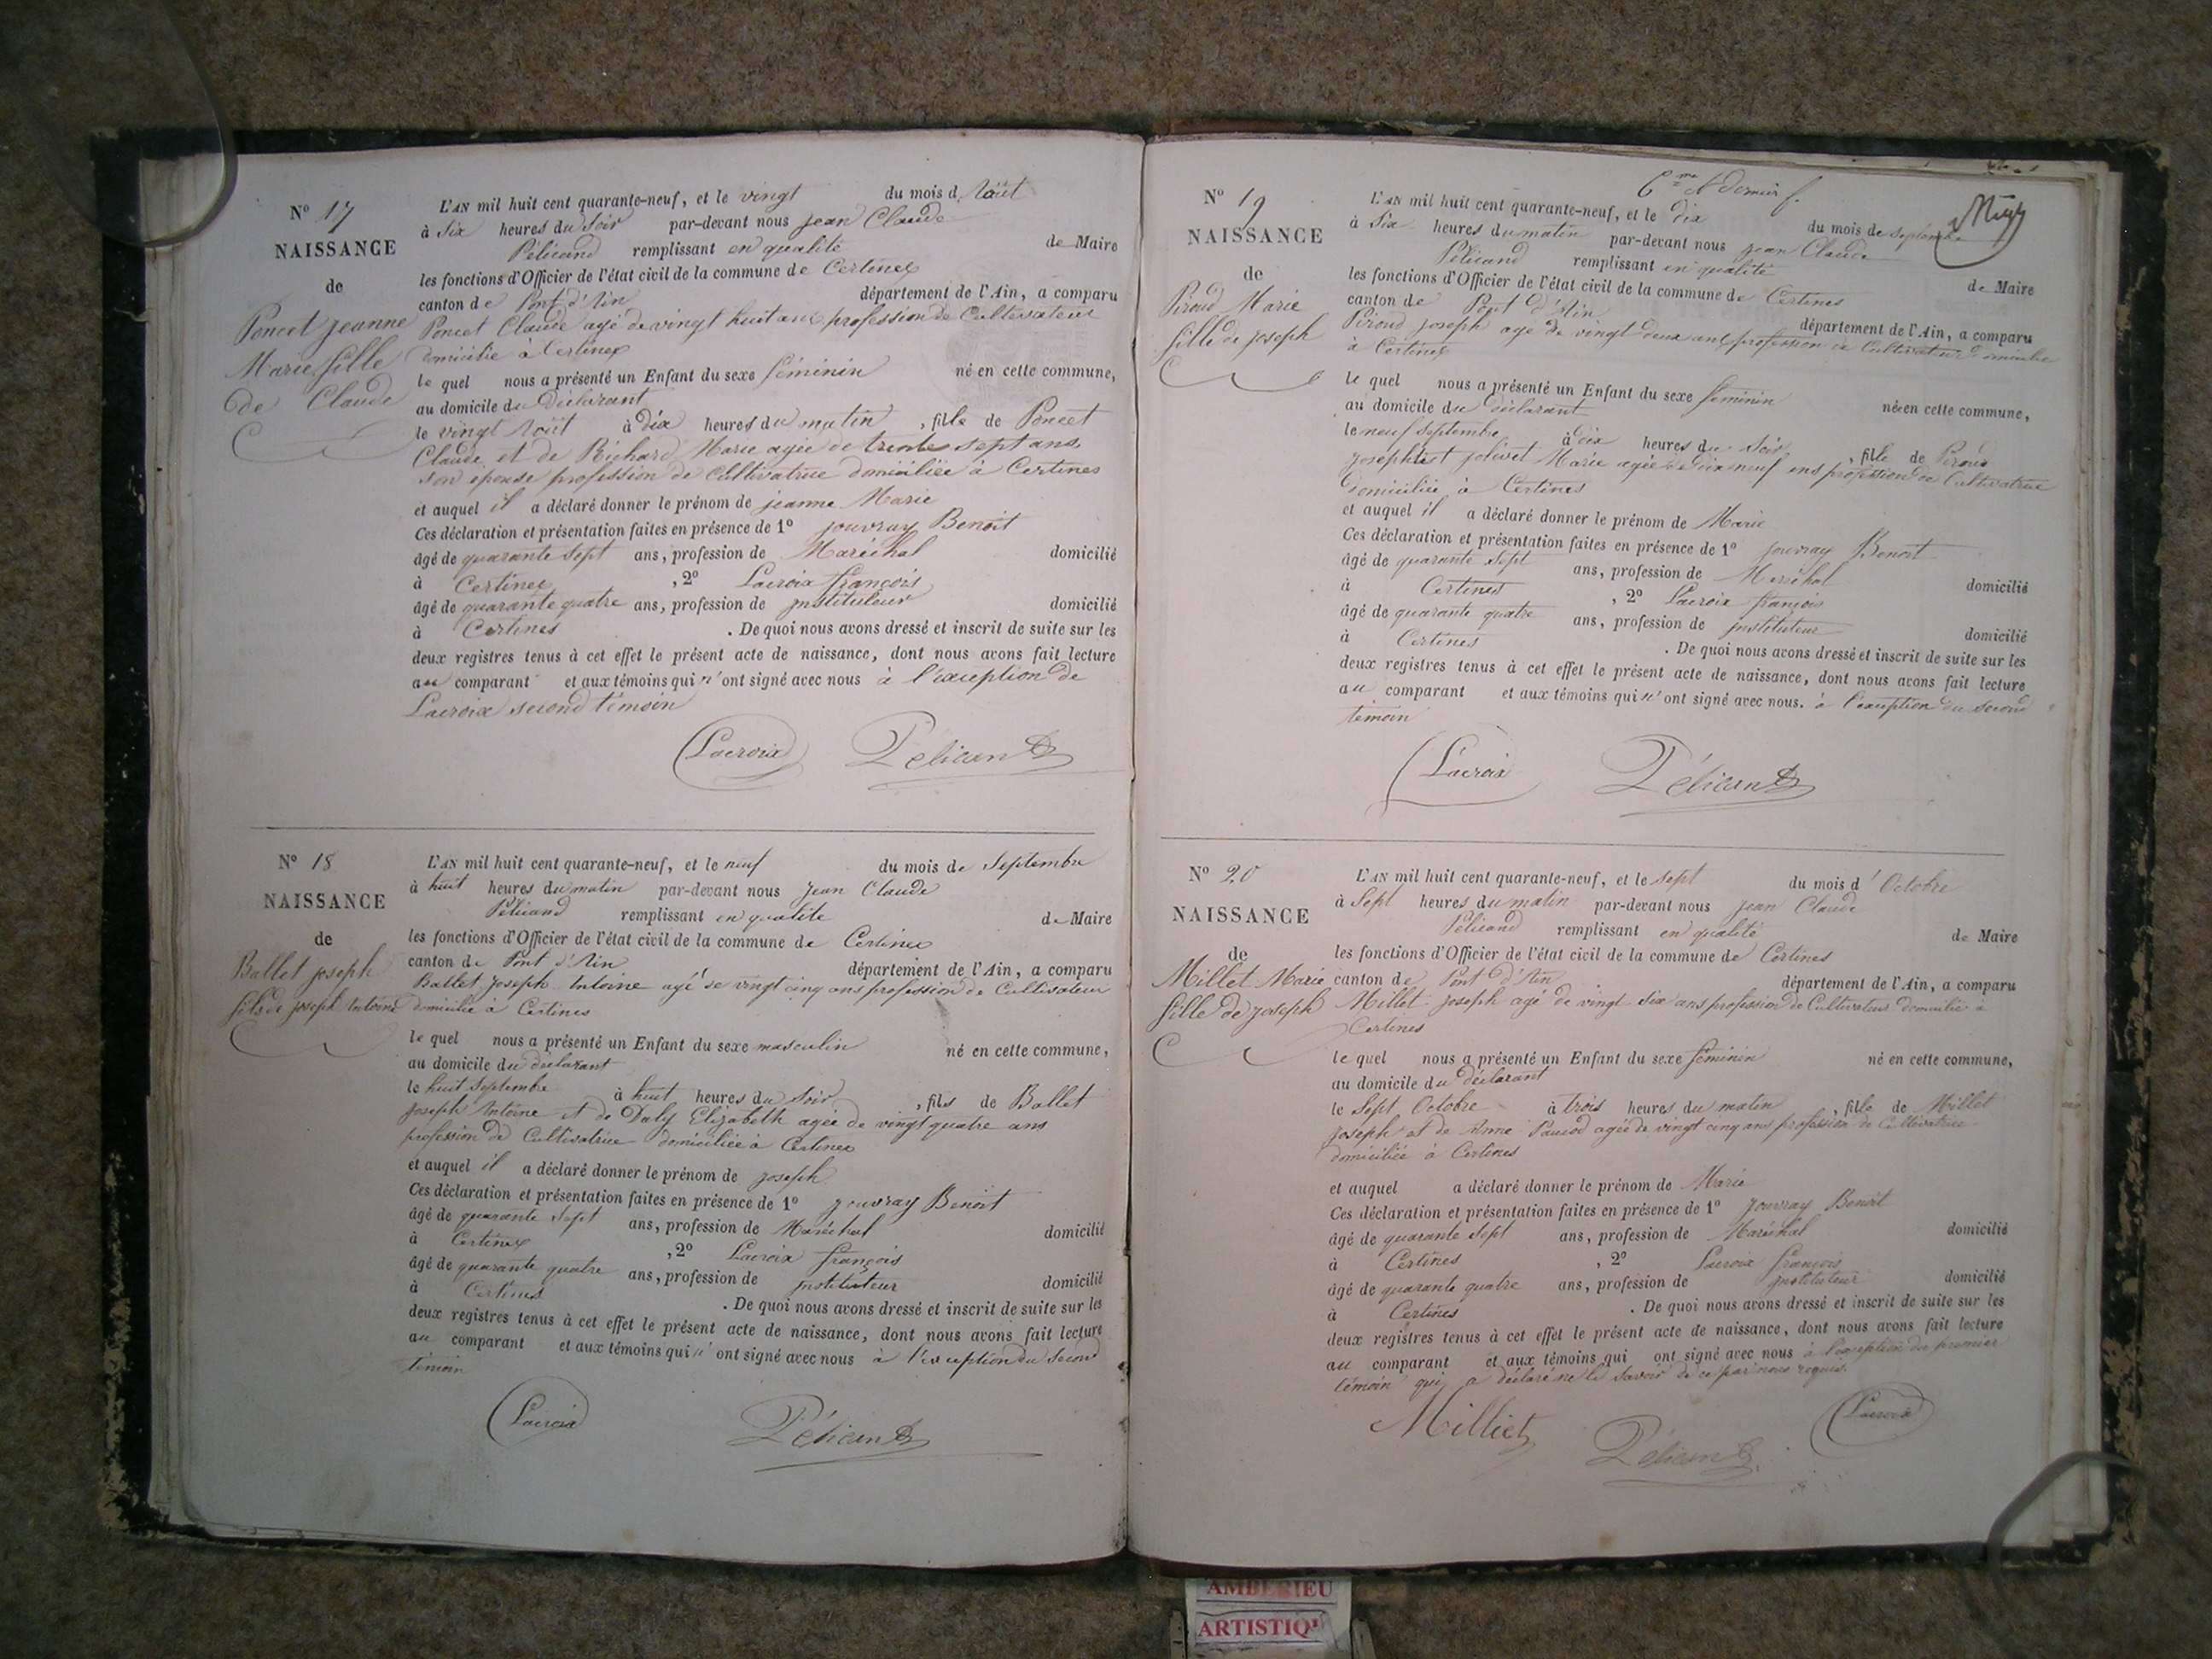 Nº 17
NAISSANCE
de
Poncet jeanne
Marie fille
de Claude
L'AN mil huit cent quarante-neuf, et le vingt du mois d'Août
à Six heures du Soir par-devant nous jean Claude
Pélicand remplissant en qualité de Maire
les fonctions d'Officier de l'état civil de la commune de Certines
canton de Pont d'Ain département de l'Ain, a comparu
Poncet Claude agé de vingt huit ans profession de Cultivateur
domicilié à Certines
le quel nous a présenté un Enfant du sexe féminin né en cette commune,
au domicile du déclarant
le vingt Août à dix heures du matin, fille de Poncet
Claude et de Richard Marie agée de trente sept ans
son epouse profession de Cultivatrice domiciliée à Certines
et auquel il a déclaré donner le prénom de jeanne Marie
Ces déclaration et présentation faites en présence de 1º jouvray Benoit
âgé de quarante sept ans, profession de Maréchal domicilié
à Certines, 2º Lacroix françois
âgé de quarante quatre ans, profession de jnstituteur domicilié
à Certines. De quoi nous avons dressé et inscrit de suite sur les
deux registres tenus à cet effet le présent acte de naissance, dont nous avons fait lecture
au comparant et aux témoins qui n'ont signé avec nous à l'exception de
Lacroix second témoin
Lacroix Pélicand
Nº 18
NAISSANCE
de
Ballet joseph
fils de joseph Antoine
L'AN mil huit cent quarante-neuf, et le neuf du mois de Septembre
à huit heures du matin par-devant nous jean Claude
Pélicand remplissant en qualité de Maire
les fonctions d'Officier de l'état civil de la commune de Certines
canton de Pont d'Ain département de l'Ain, a comparu
Ballet joseph Antoine agé de vingt cinq ans profession de Cultivateur
domicilié à Certines
le quel nous a présenté un Enfant du sexe masculin né en cette commune,
au domicile du déclarant
le huit Septembre à huit heures du Soir, fils de Ballet
joseph Antoine et de Daly Elizabeth agée de vingt quatre ans
profession de Cultivatrice domiciliée à Certines
et auquel il a déclaré donner le prénom de joseph
Ces déclaration et présentation faites en présence de 1º jouvray Benoit
âgé de quarante sept ans, profession de Maréchal domicilié
à Certines, 2º Lacroix françois
âgé de quarante quatre ans, profession de jnstituteur domicilié
à Certines. De quoi nous avons dressé et inscrit de suite sur les
deux registres tenus à cet effet le présent acte de naissance, dont nous avons fait lecture
au comparant et aux témoins qui n'ont signé avec nous à l'exception du Second
témoin
Lacroix Pélicand
6me & dernier f.
Nº 19
NAISSANCE
de
Piroud Marie
fille de joseph
L'AN mil huit cent quarante-neuf, et le dix du mois de septembre
à Six heures du matin par-devant nous jean Claude
Pélicand remplissant en qualité de Maire
les fonctions d'Officier de l'état civil de la commune de Certines
canton de Pont d'Ain département de l'Ain, a comparu
Piroud joseph agé de vingt deux ans profession de Cultivateur domicilié
à Certines
le quel nous a présenté un Enfant du sexe féminin née en cette commune,
au domicile du déclarant
le neuf Septembre à dix heures du Soir, fille de Piroud
joseph et jolivet Marie agée de dix neuf ans profession de Cultivatrice
domiciliée à Certines
et auquel il a déclaré donner le prénom de Marie
Ces déclaration et présentation faites en présence de 1º jouvray Benoit
âgé de quarante sept ans, profession de Maréchal domicilié
à Certines, 2º Lacroix françois
âgé de quarante quatre ans, profession de jnstituteur domicilié
à Certines. De quoi nous avons dressé et inscrit de suite sur les
deux registres tenus à cet effet le présent acte de naissance, dont nous avons fait lecture
au comparant et aux témoins qui n'ont signé avec nous. à l'exception du second
témoin
Lacroix Pélicand
Nº 20
NAISSANCE
de
Millet Marie
fille de joseph
L'AN mil huit cent quarante-neuf, et le sept du mois d'Octobre
à Sept heures du matin par-devant nous jean Claude
Pélicand remplissant en qualité de Maire
les fonctions d'Officier de l'état civil de la commune de Certines
canton de Pont d'Ain département de l'Ain, a comparu
Millet joseph agé de vingt six ans profession de Cultivateur domicilié à
Certines
le quel nous a présenté un Enfant du sexe féminin né en cette commune,
au domicile du déclarant
le Sept Octobre à trois heures du matin, fille de Millet
joseph et de Anne agée de vingt cinq ans profession de Cultivatrice
domiciliée à Certines
et auquel a déclaré donner le prénom de Marie
Ces déclaration et présentation faites en présence de 1º jouvray Benoit
âgé de quarante sept ans, profession de Maréchal domicilié
à Certines, 2º Lacroix françois
âgé de quarante quatre ans, profession de jnstituteur domicilié
à Certines. De quoi nous avons dressé et inscrit de suite sur les
deux registres tenus à cet effet le présent acte de naissance, dont nous avons fait lecture
au comparant et aux témoins qui ont signé avec nous à l'exception du premier
témoin qui a déclaré ne le savoir de ce par nous requis.
Milliet Pélicand Lacroix
AMBERIEU
ARTISTIQ